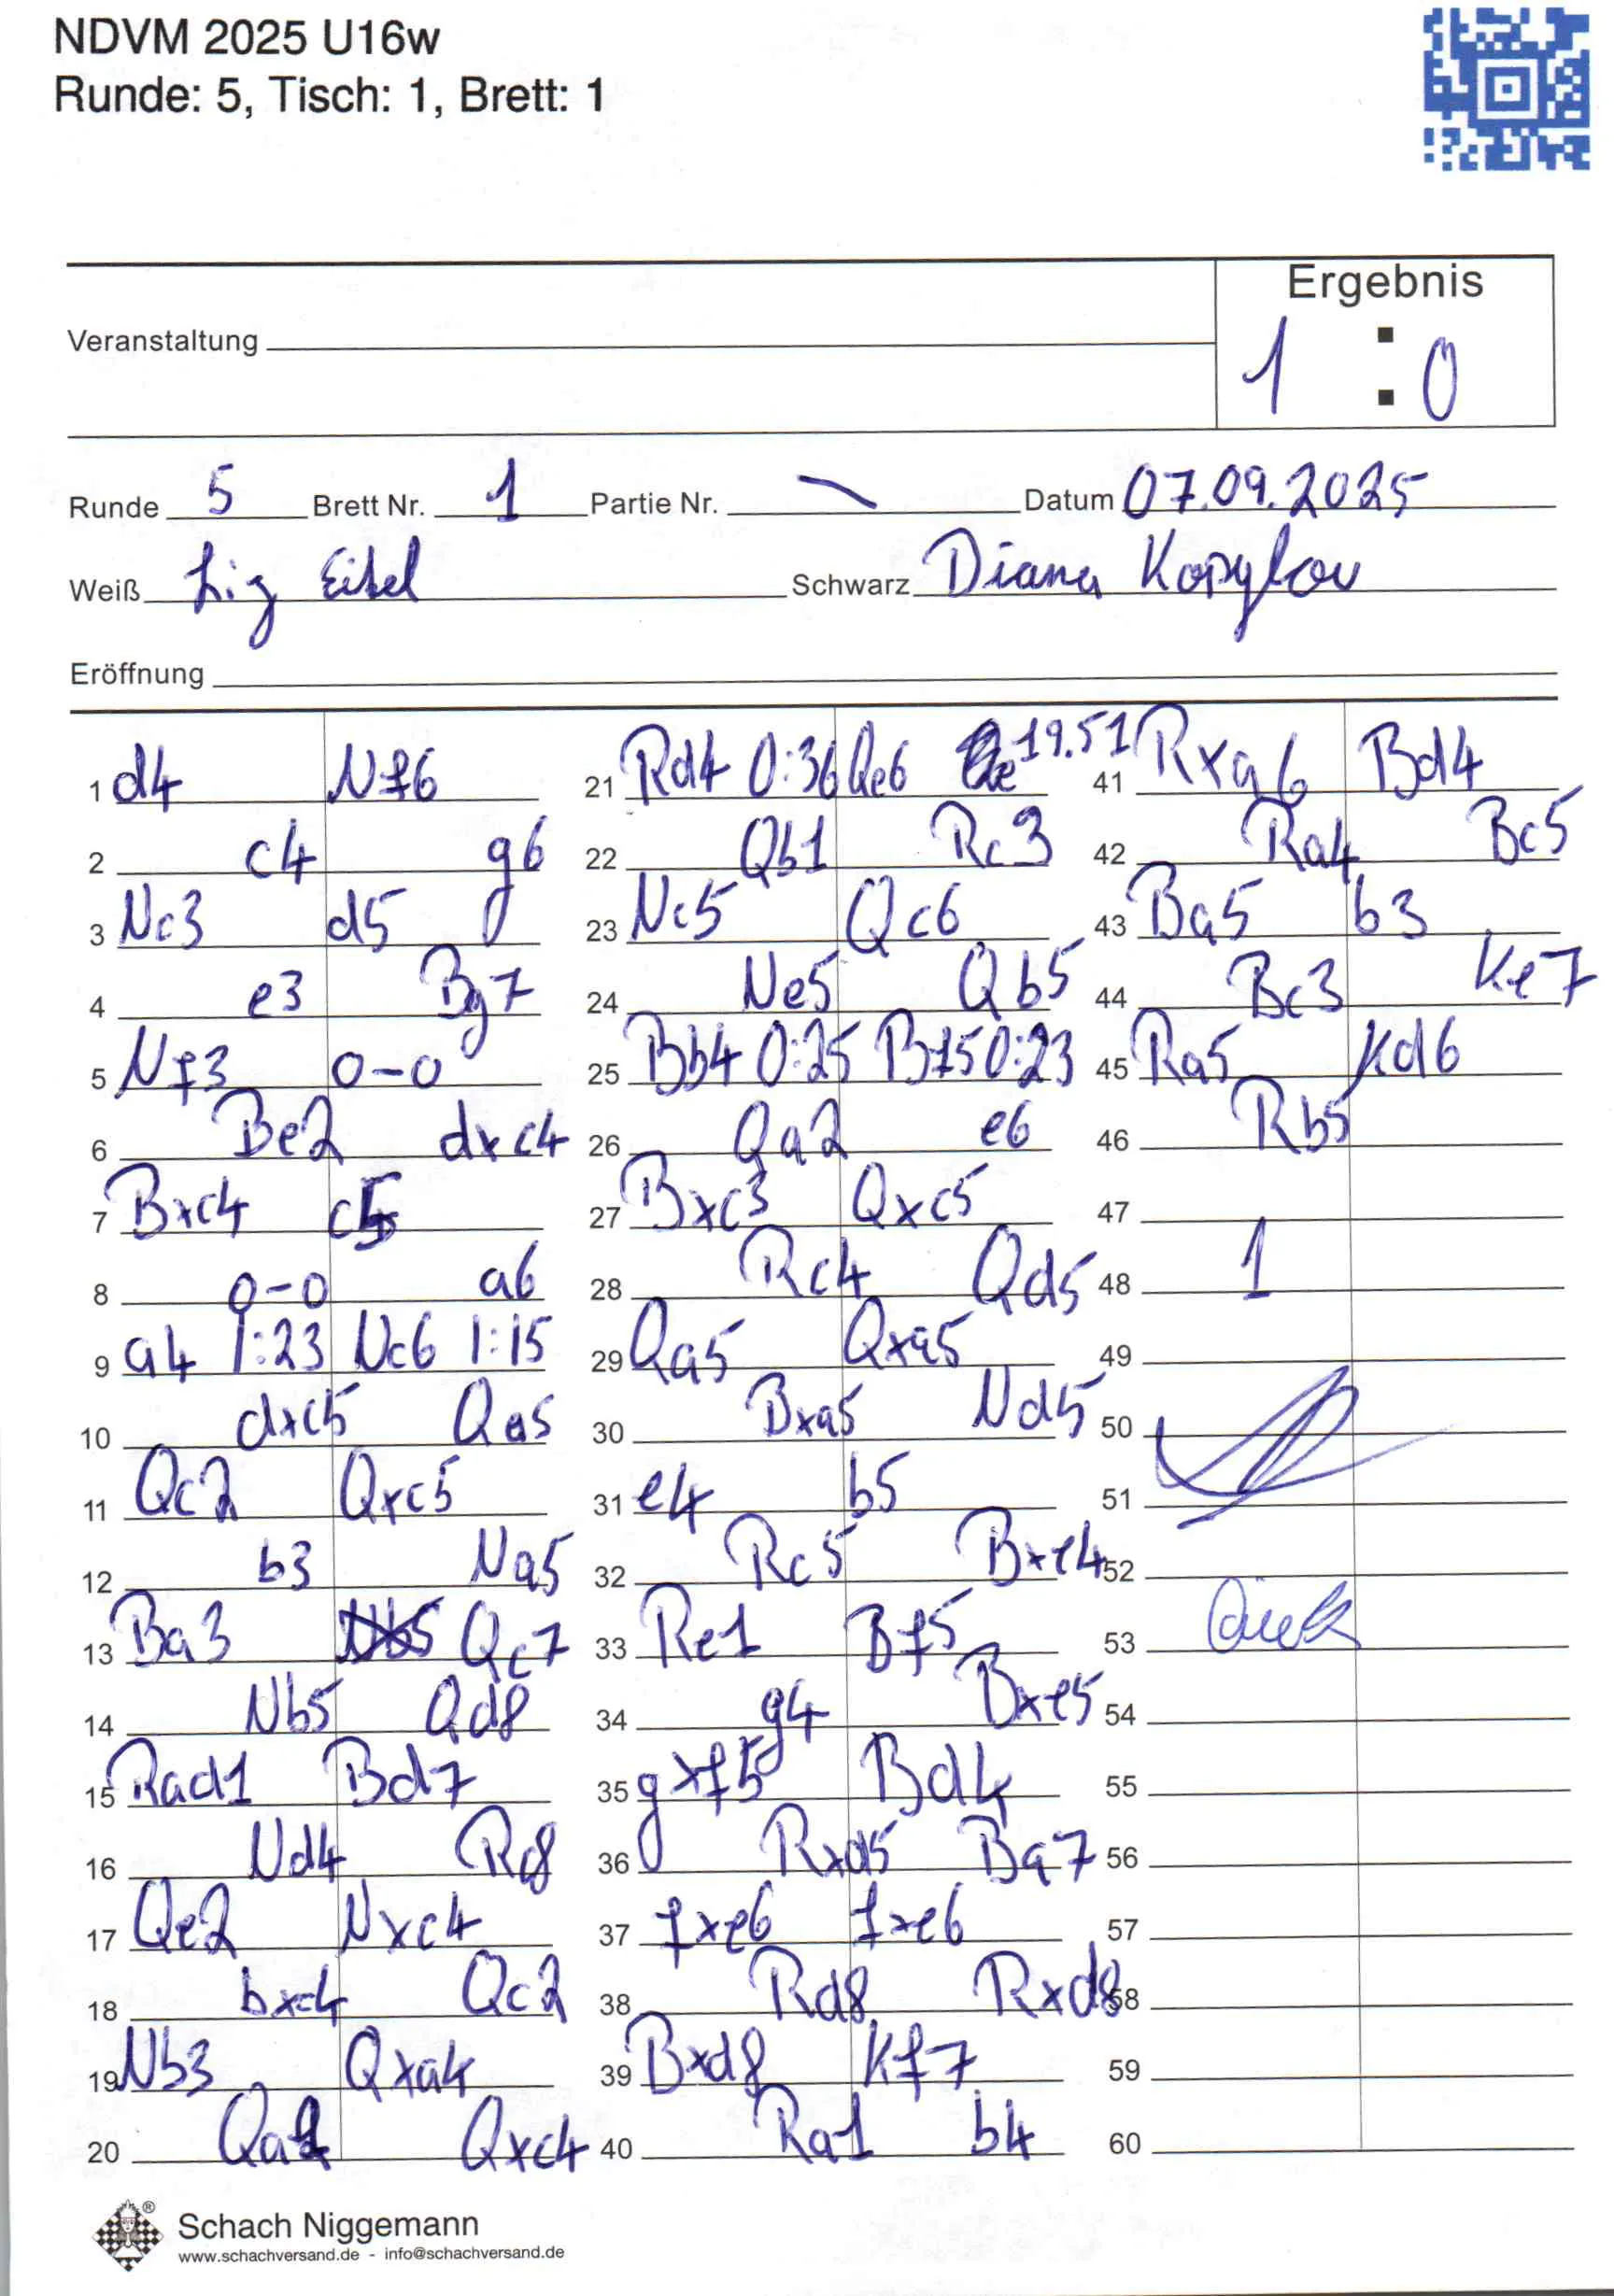 NDVM 2025 U16w
Runde: 5, Tisch: 1, Brett: 1
Ergebnis
Veranstaltung
1 : 0
Runde 5 Brett Nr. 1 Partie Nr. Datum 07.09.2025
Weiß Schwarz Diana Kopylov
Eröffnung
1 d4 Nf6
2 c4 g6
3 Nc3 d5
4 e3 Bg7
5 Nf3 0-0
6 Be2 dxc4
7 Bxc4 c5
8 0-0 a6
9 a4 1:23 Nc6 1:15
10 dxc5 Qa5
11 Qc2 Qxc5
12 b3 Na5
13 Ba3 Qc7
14 Nb5 Qd8
15 Rad1 Bd7
16 Nd4 Rc8
17 Qe2 Nxc4
18 bxc4 Qc2
19 Nb3 Qxa4
20 Qa2 Qxc4
21 Rd4 0:36 Qe6 19.51
22 Qb1 Rc3
23 Nc5 Qc6
24 Ne5 Qb5
25 Bb4 0:25 Bf5 0:23
26 Qa2 e6
27 Bxc3 Qxc5
28 Rc4 Qd5
29 Qa5 Qxa5
30 Bxa5 Nd5
31 e4 b5
32 Rc5 Bxe4
33 Re1 Bf5
34 g4 Bxe5
35 gxf5 Bd4
36 Rxd5 Ba7
37 fxe6 fxe6
38 Rd8 Rxd8
39 Bxd8 Kf7
40 Ra1 b4
41 Rxa6 Bd4
42 Ra4 Bc5
43 Ba5 b3
44 Bc3 Ke7
45 Ra5 Kd6
46 Rb5
47
48 1
49
50
51
52
53
54
55
56
57
58
59
60
Schach Niggemann
www.schachversand.de - info@schachversand.de